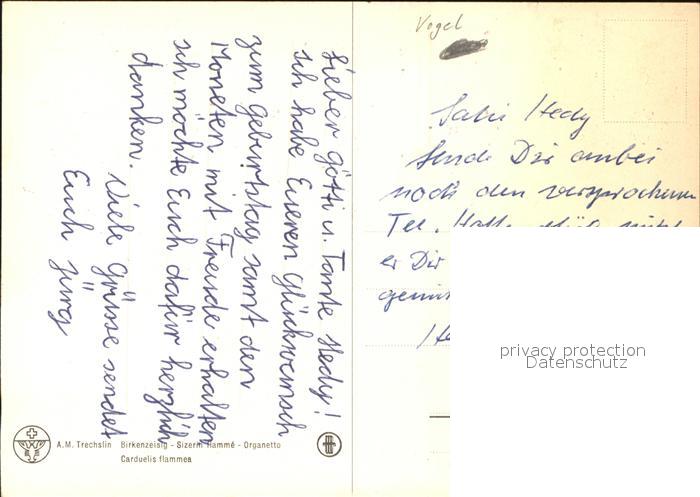 Lieber Götti u. Tante Hedy!
Ich habe Eueren Glückwunsch
zum geburtstag samt den
Moneten mit Freude erhalten
ich möchte Euch dafür herzlich
danken.
Viele Grüsse sendet
Euch Jürg
A.M. Trechslin Birkenzeisig - Sizerin flammé - Organetto
Carduelis flammea
Vogel
Hedy
Sende Dir anbei
noch den versprochenen
Tel.
er Dir
privacy protection
Datenschutz